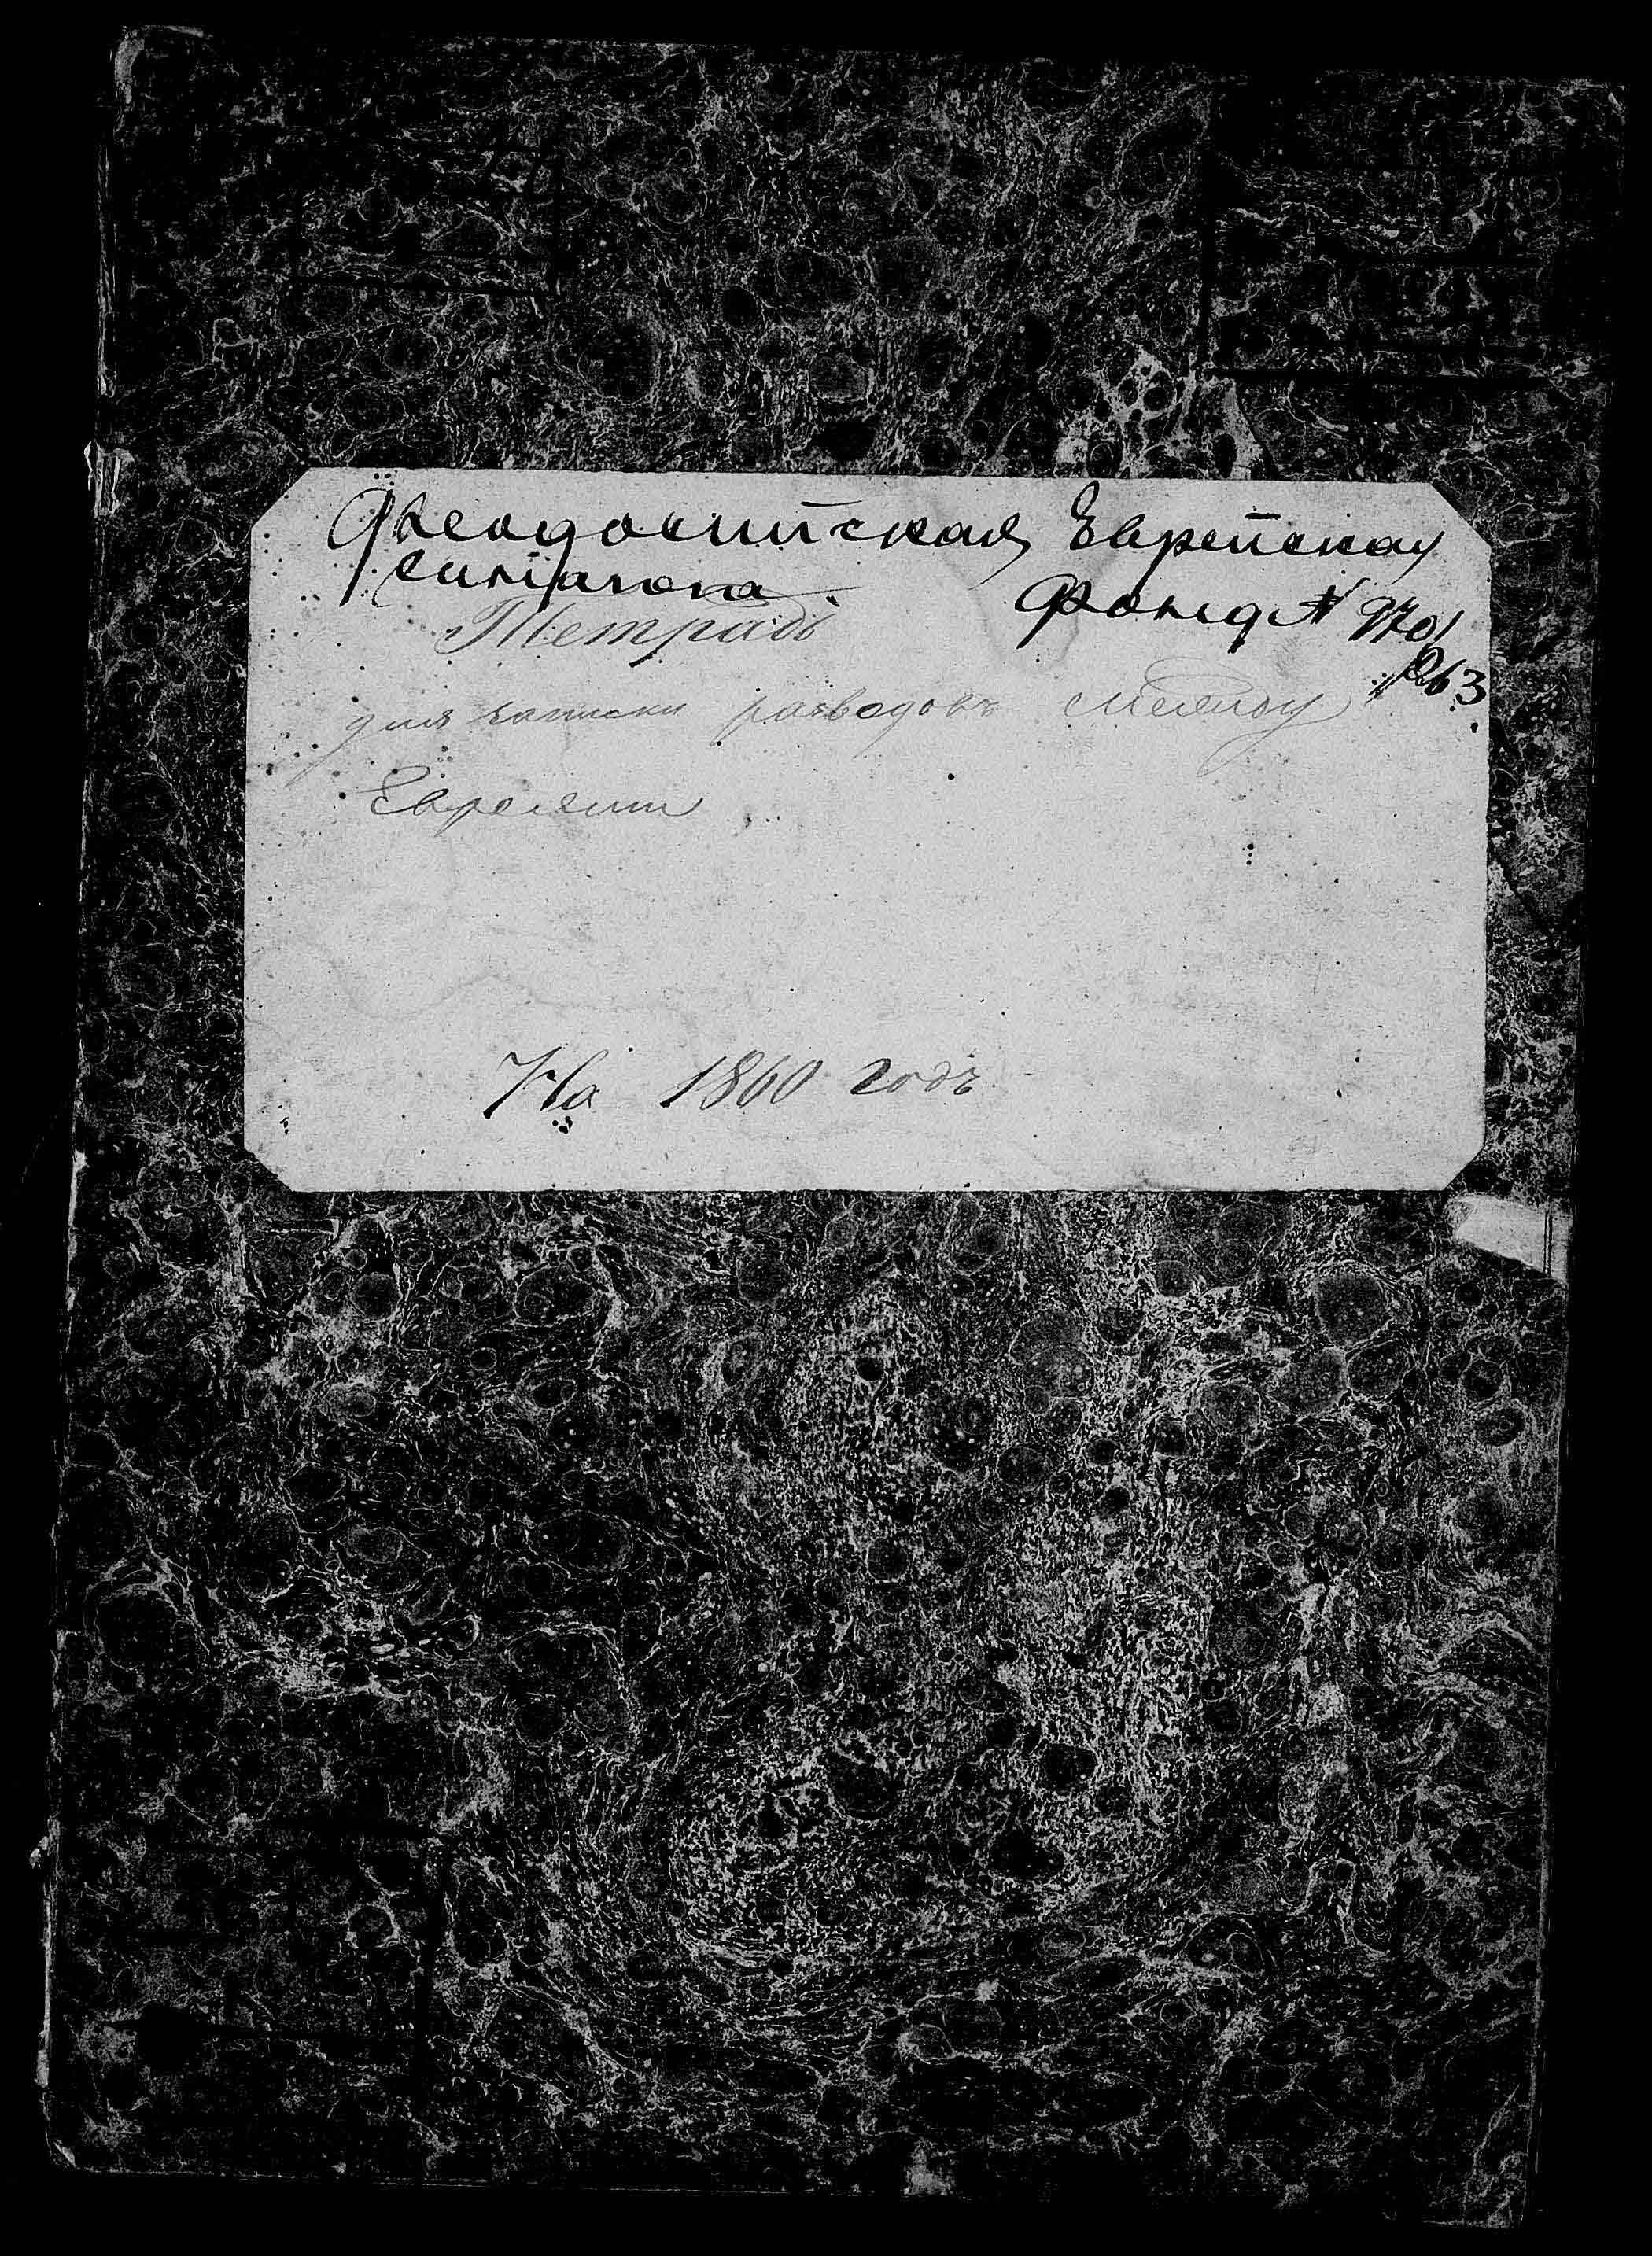 Феодосийская Еврейская
Синагога. Фонд № 970/
263
Тетрадь
для записки разводовъ между
Евреями
На 1860 годъ